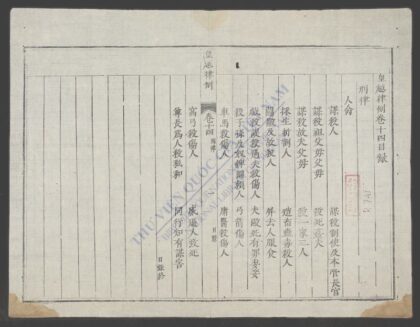 皇越律例卷十四目錄
刑律
人命
謀殺人 謀殺制使及本管長官
謀殺祖父母父母 殺死姦夫
謀殺故夫父母 殺一家三人
採生折割人 造畜蠱毒殺人
鬪毆及故殺人 屏去人服食
戲殺誤殺過失殺傷人 夫毆死有罪妻妾
殺子孫及奴婢圖賴人 弓箭傷人
車馬殺傷人 庸醫殺傷人
皇越律例 卷十四 刑律 目錄
窩弓殺傷人 威逼人致死
尊長為人殺私和 同行知有謀害
目錄終
THƯ VIỆN QUỐC GIA VIỆT NAM